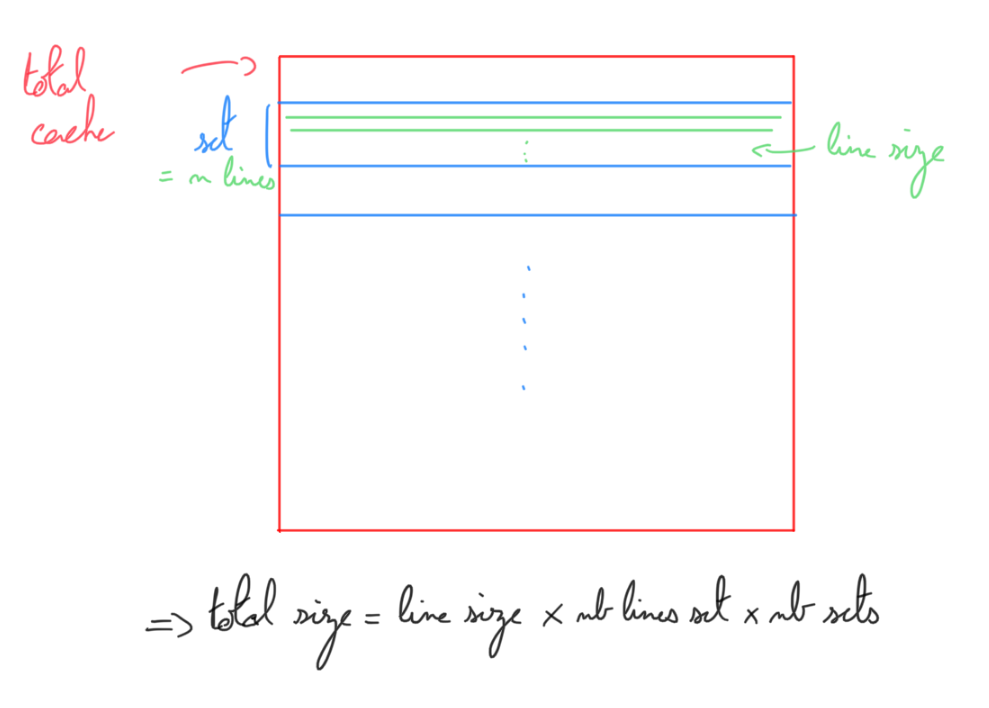 total
cache
set
= n lines
line size
=> total size = line size × nb lines set × nb sets